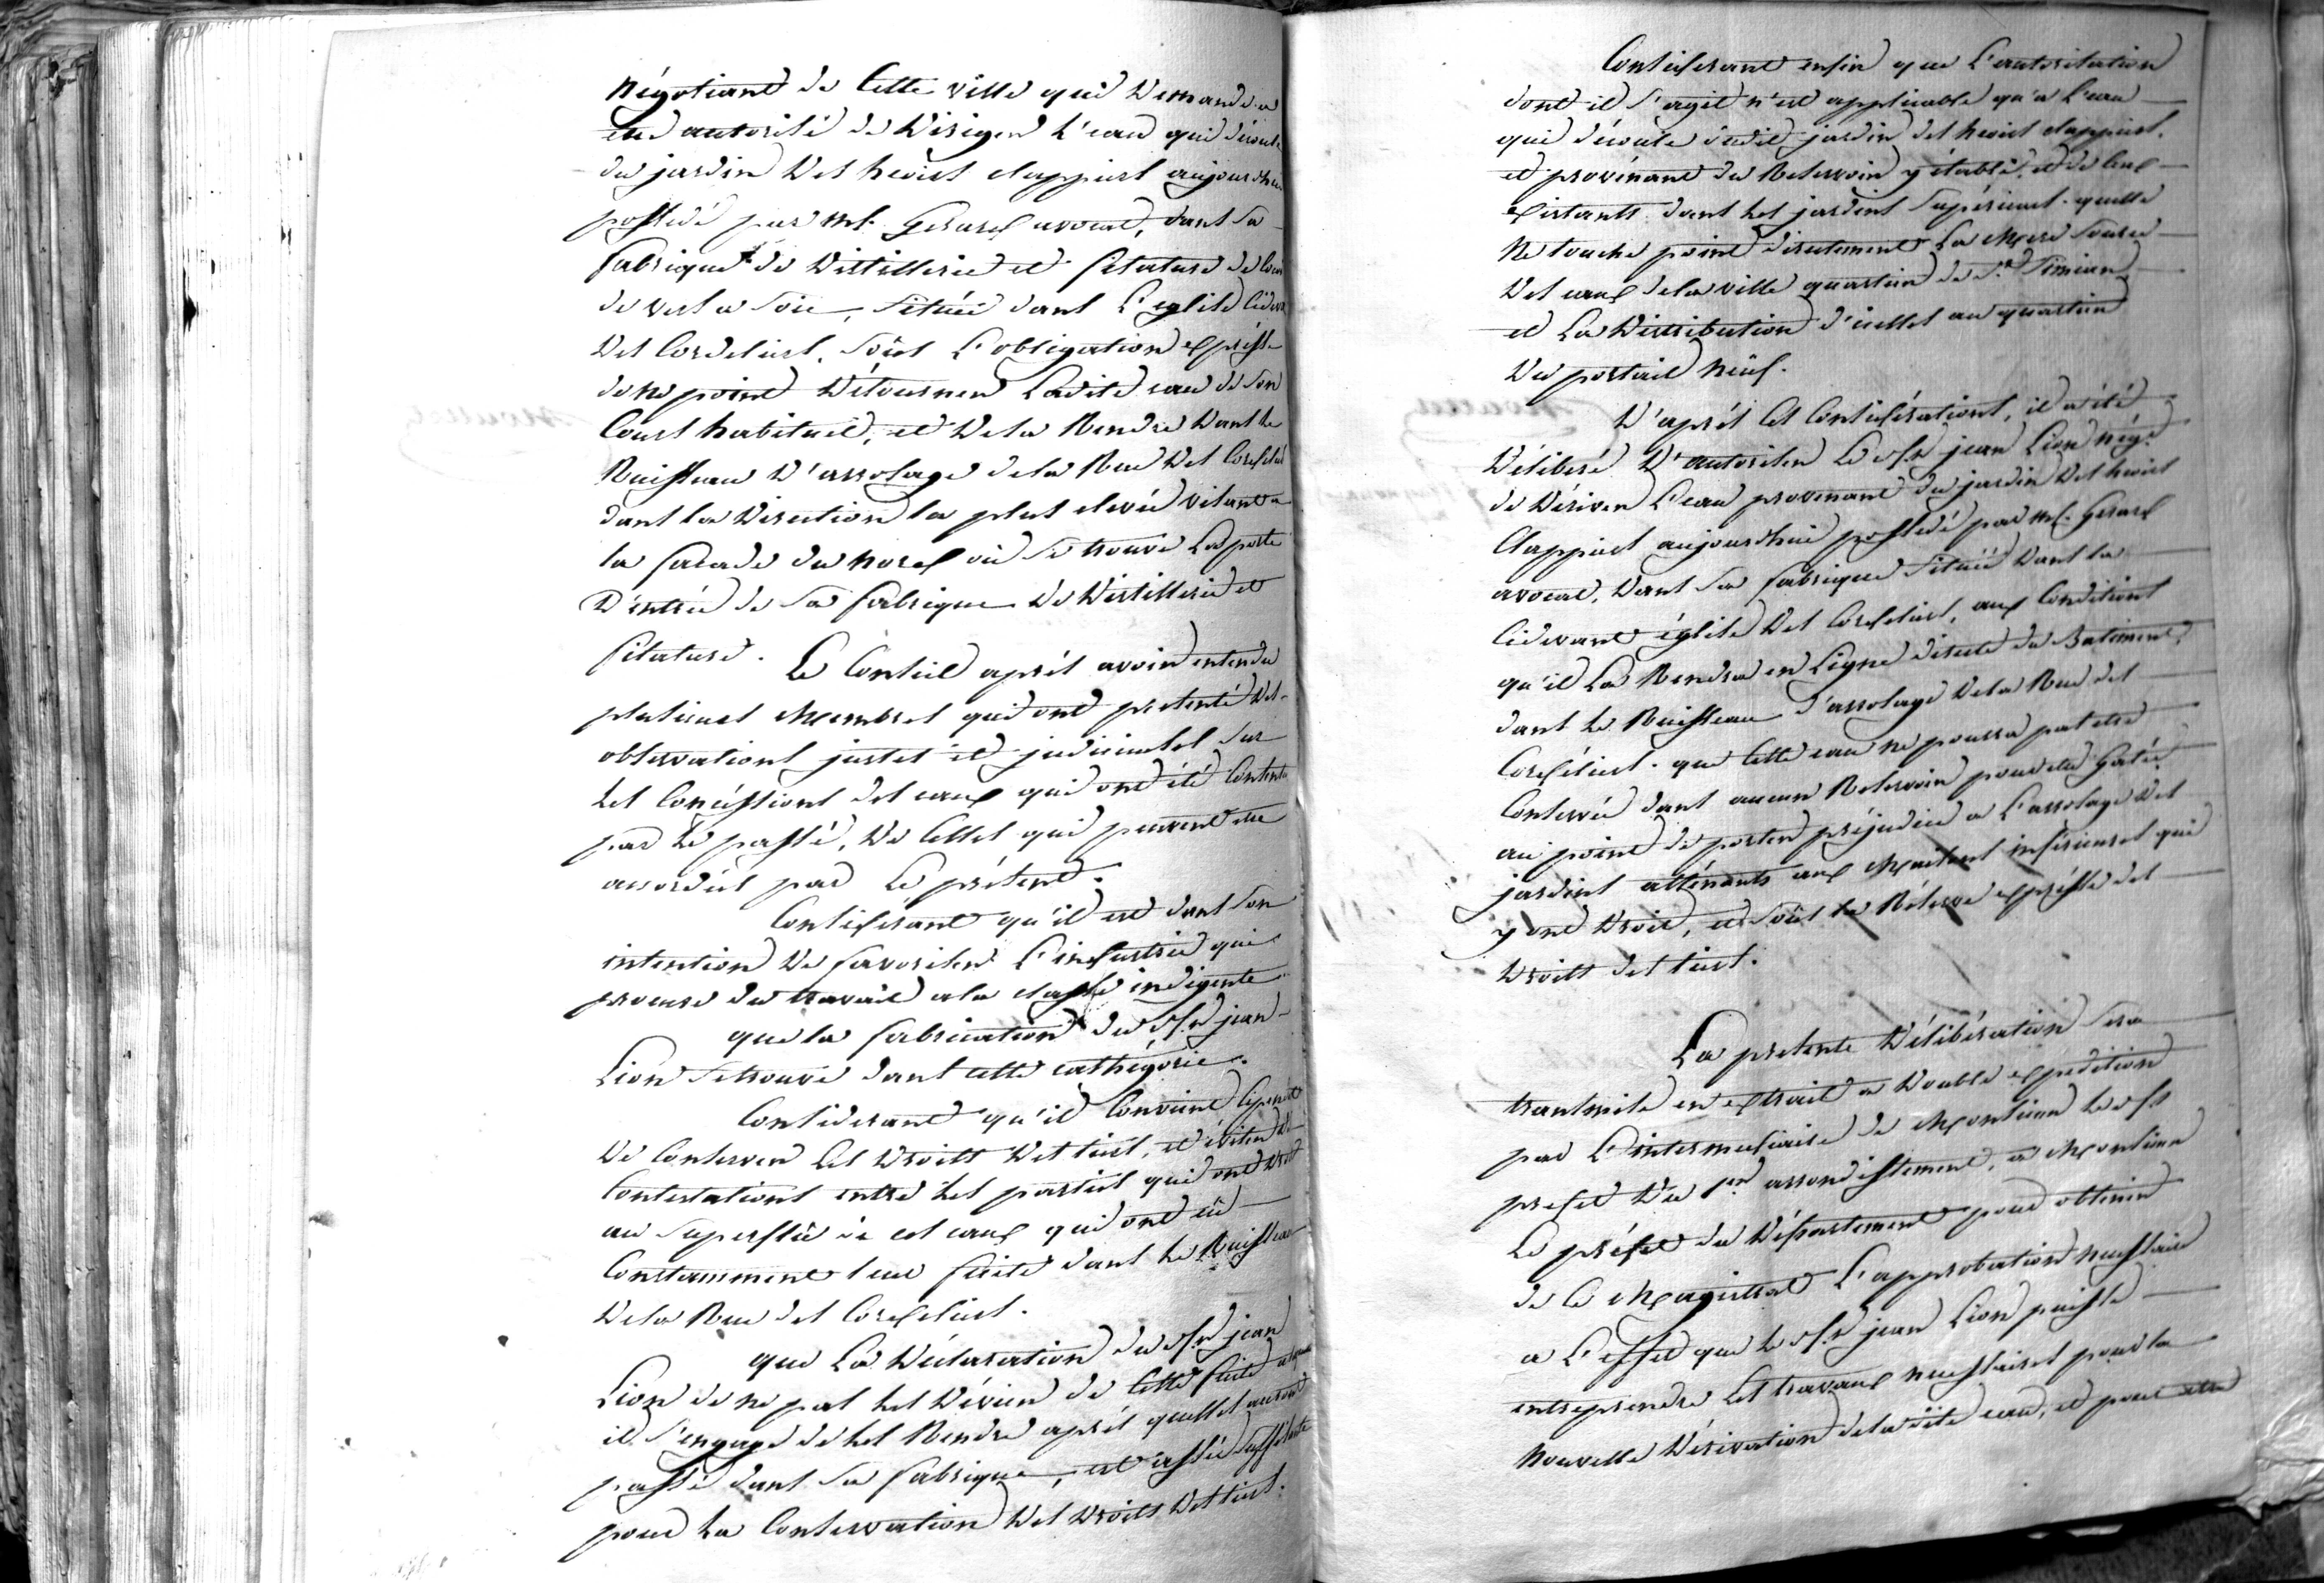 négotiant de Cette ville qui demande a
etre autorisé de diriger l'eau qui découle
du jardin des hoirs clappiers aujourdhui
possedé par mr. Gerard avocat, dans sa
fabrique de distillerie et filature de
de vers a soie, située dans l'eglise cidevant
des Cordeliers, sous l'obligation expresse
de ne point détourner Ladite eau de son
Cours habituel, et de la Rendre dans le
Ruisseau d'arrosage dela Rue des Cordeliers
dans la direction la plus elevée visant a
la façade du nord où se trouve La porte
D'entrée de sa fabrique de distillerie et
filature. Le Conseil après avoir entendu
plusieurs Membres qui ont présenté des
observations justes et judicieuses sur
les Concessions des eaux qui ont été
par le passé, de Celles qui peuvent etre
accordées par Le présent.
Considérant qu'il est dans son
intention de favoriser l'industrie qui
procure du travail ala classe indigente
que la fabrication du sr. jean
Lion se trouve dans cette cathégorie.
Considerant qu'il Convient
de Conserver les droits des tiers, et éviter des
Contestations entre les parties qui ont droit
au superflu de ces eaux qui ont eû
Constamment leur fuite dans le Ruisseau
dela Rue des Cordeliers.
que La déclaration du sr. jean
Lion de ne pas les dévier de cette fuite
il s'engage de les Rendre après quelles auront
passé dans sa fabrique, est assés suffisante
pour la Conservation des droits des tiers.
Considerant enfin que L'autorisation
dont il s'agit n'est applicable qu'a l'eau
qui découle dudit jardin des hoirs clappiers,
et provénant du Reservoir y établi, et de ceux
existants dans les jardins supérieurs. quelle
ne touche point directement La Mere source
des eaux dela ville quartier de St. Simian
et La distribution d'icelles au quartier
du portail neuf.
D'après Ces Considérations, il a été
déliberé d'autoriser Le sr. jean Lion négt.
de dériver L'eau provenant du jardin des hoirs
Clappiers aujourdhui possédé par mr. Gerard
avocat, dans sa fabrique située dans la
cidevant église des Cordeliers, aux Conditions
qu'il La Rendra en Ligne directe du Batiment,
dans le Ruisseau d'arrosage dela Rue des
Cordéliers. que Cette eau ne pourra pas etre
Conservée dans aucun Reservoir pour etre gatée
au point de porter préjudice a L'arrosage des
jardins atténants aux Maisons inférieures qui
y ont droit, et sous la Réserve expresse des
droits des tiers.
La présente Délibération sera
transmise en extrait a double expedition
par L'intermediaire de Monsieur le sous
prefet du 1er arrondissement, a Monsieur
Le préfet du Département pour obtenir
de ce Magistrat L'approbation necessaire
a L'effet que le sr. jean Lion puisse
entreprendre les travaux necessaires pour la
nouvelle dérivation dela dite eau, et pour etre